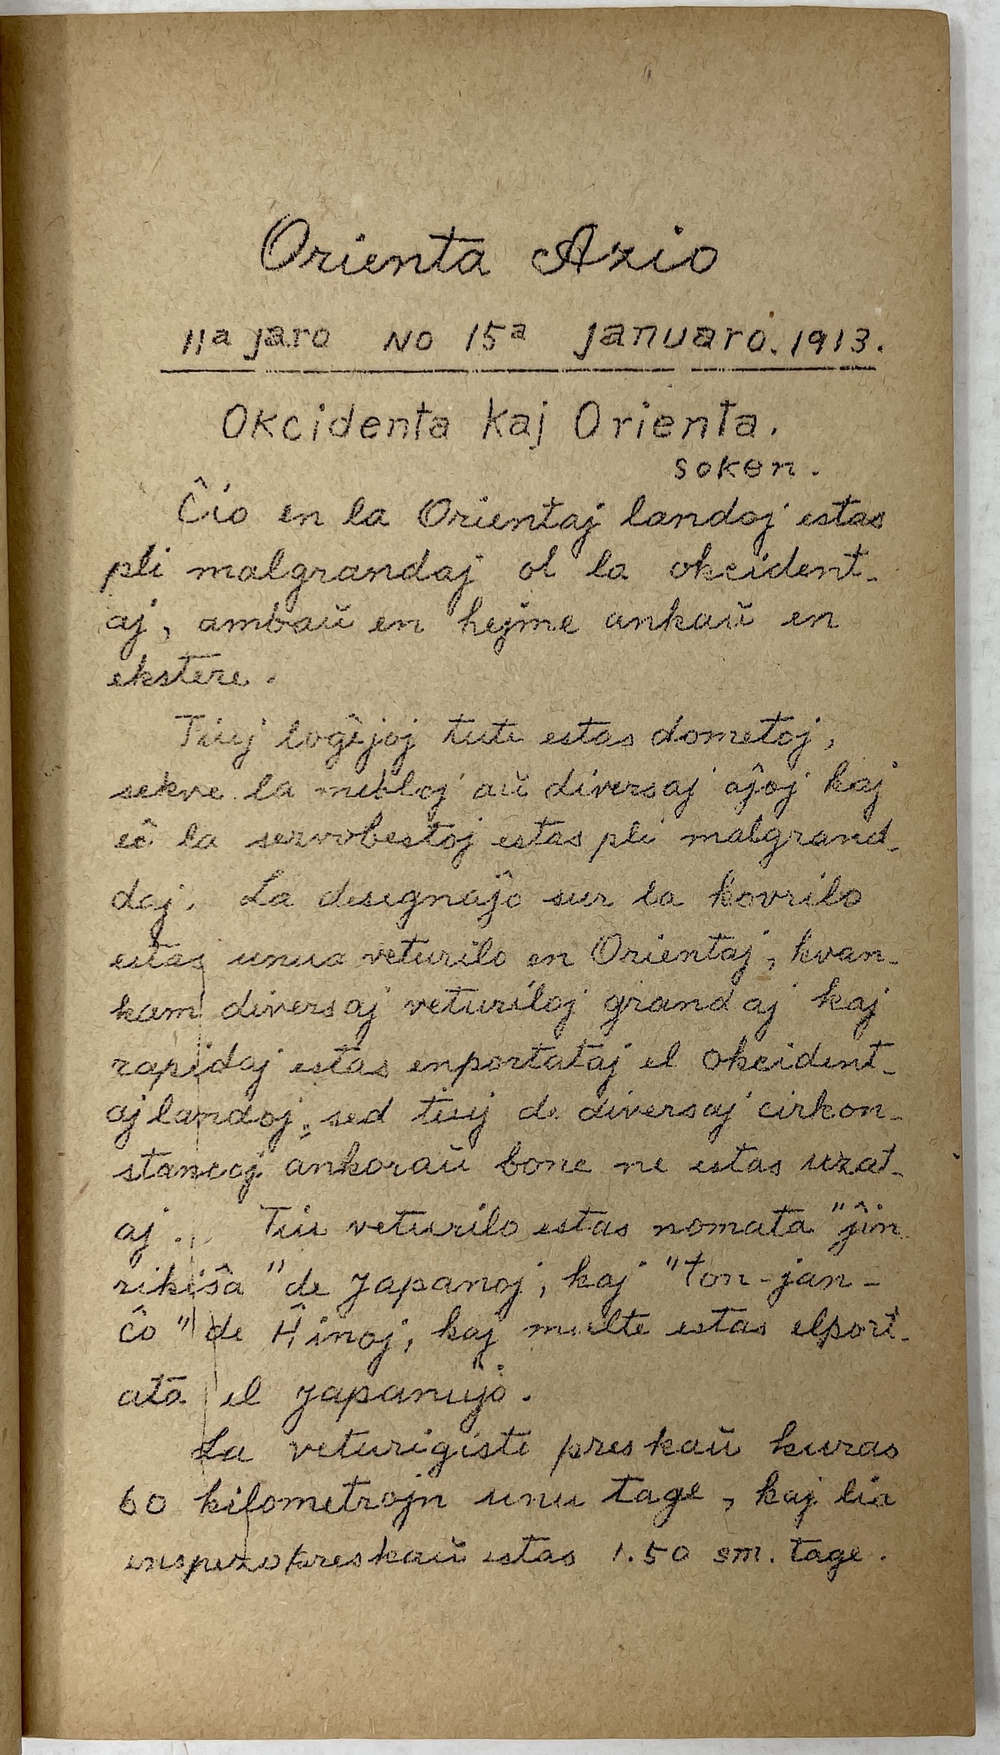 Orienta Azio
11a jaro No 15a januaro. 1913.
Okcidenta kaj Orienta.
soken.
Ĉio en la Orientaj landoj estas
pli malgrandaj ol la okcident-
aj, ambaŭ en hejme ankaŭ en
ekstere.
Tiuj loĝejoj tute estas dometoj,
sekve la mebloj aŭ diversaj aĵoj kaj
eĉ la servobestoj estas pli malgrand-
daj. La desegnaĵo sur la kovrilo
estas unua veturilo en Orientaj, kvan-
kam diversaj veturiloj grandaj kaj
rapidaj estas enportataj el okcident-
aj landoj, sed tiuj de diversaj cirkon-
stancoj ankoraŭ bone ne estas uzat-
aj. Tiu veturilo estas nomata "ĵin
rikiŝa" de Japanoj, kaj "ton-jan-
ĉo" de Ĥinoj, kaj multe estas elport-
ata el Japanujo.
La veturigisto preskaŭ kuras
60 kilometrojn unu tage, kaj lia
enspezo preskaŭ estas 1.50 sm. tage.